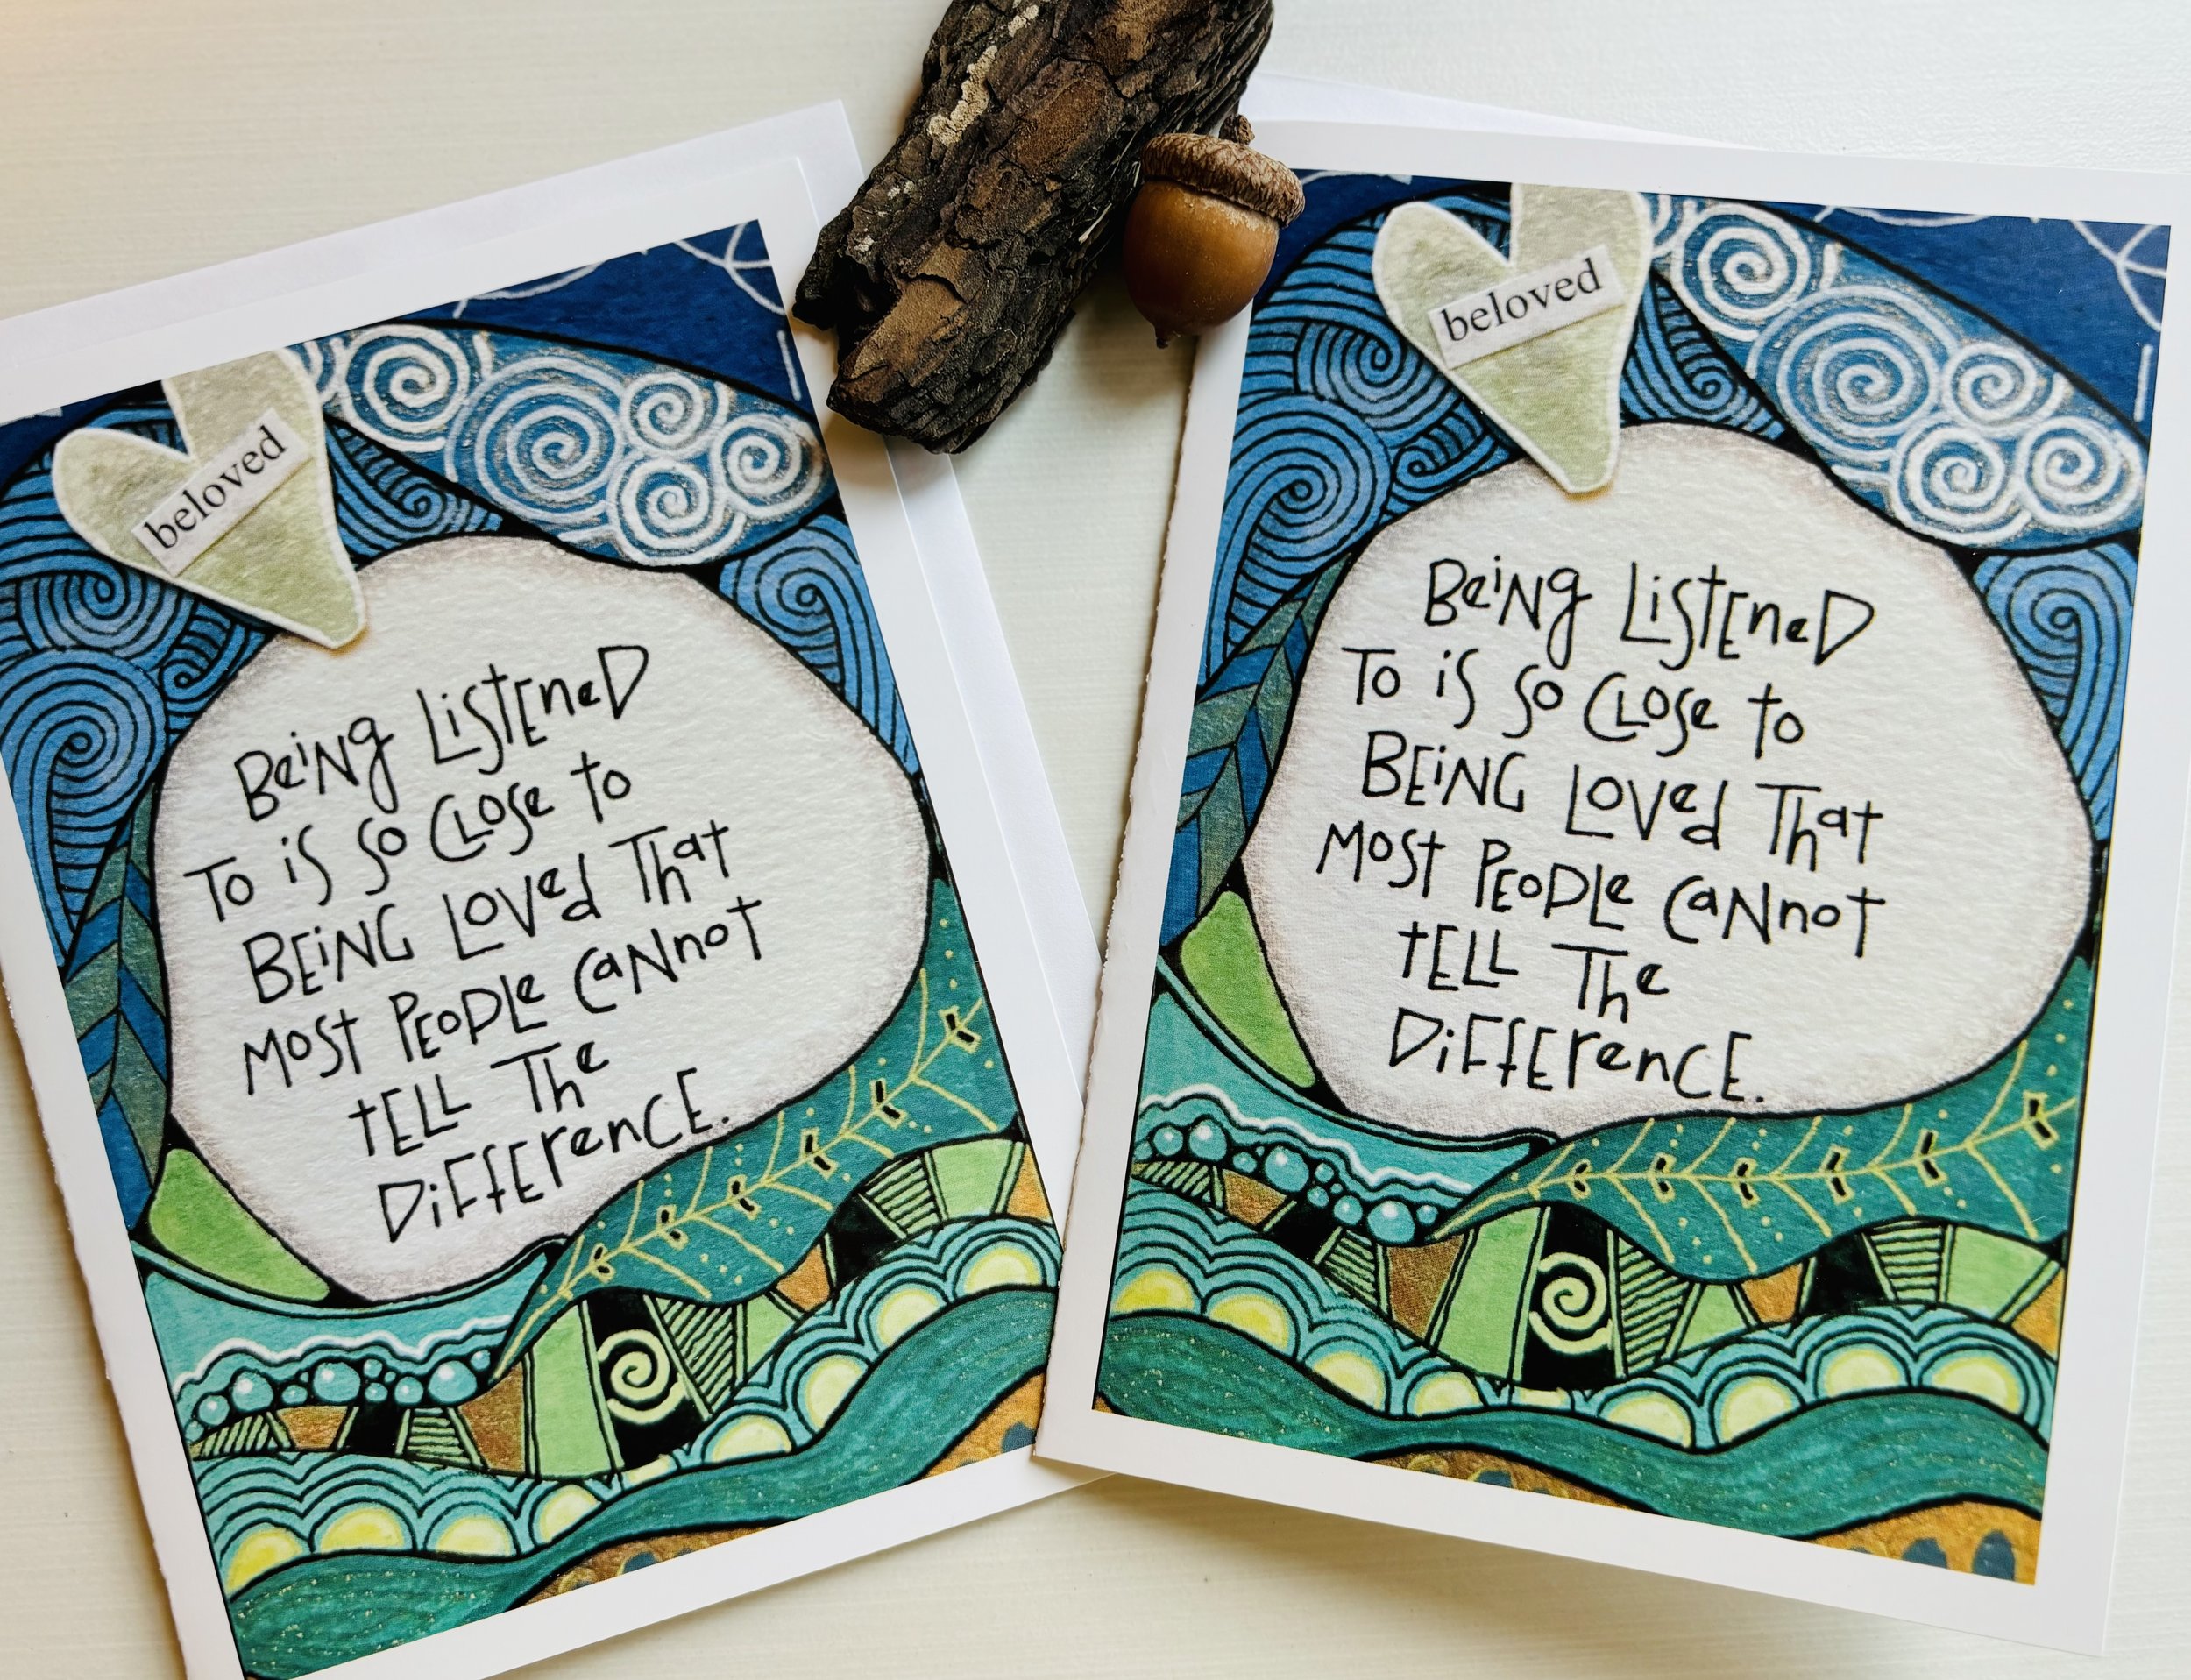 beloved
BeiNg LiStEneD
To iS So CLOSe to
BEiNG LOVed That
MOSt PEOPLe CaNnoT
tELL The
DiFfErenCE.
beloved
BeiNg LiStEneD
To iS So CLOSe to
BEiNG LOVed That
MOSt PEOPLe CaNnoT
tELL The
DiFfErenCE.